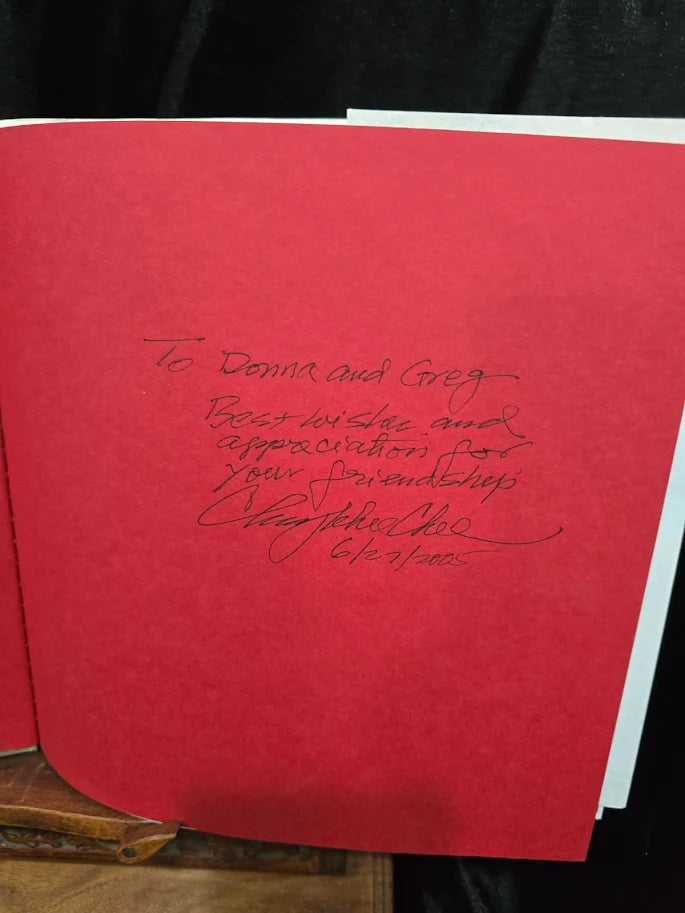 To Donna and Greg
Best wishes and
appreciation for
your friendship
Cheng Khee Chee
6/27/2005